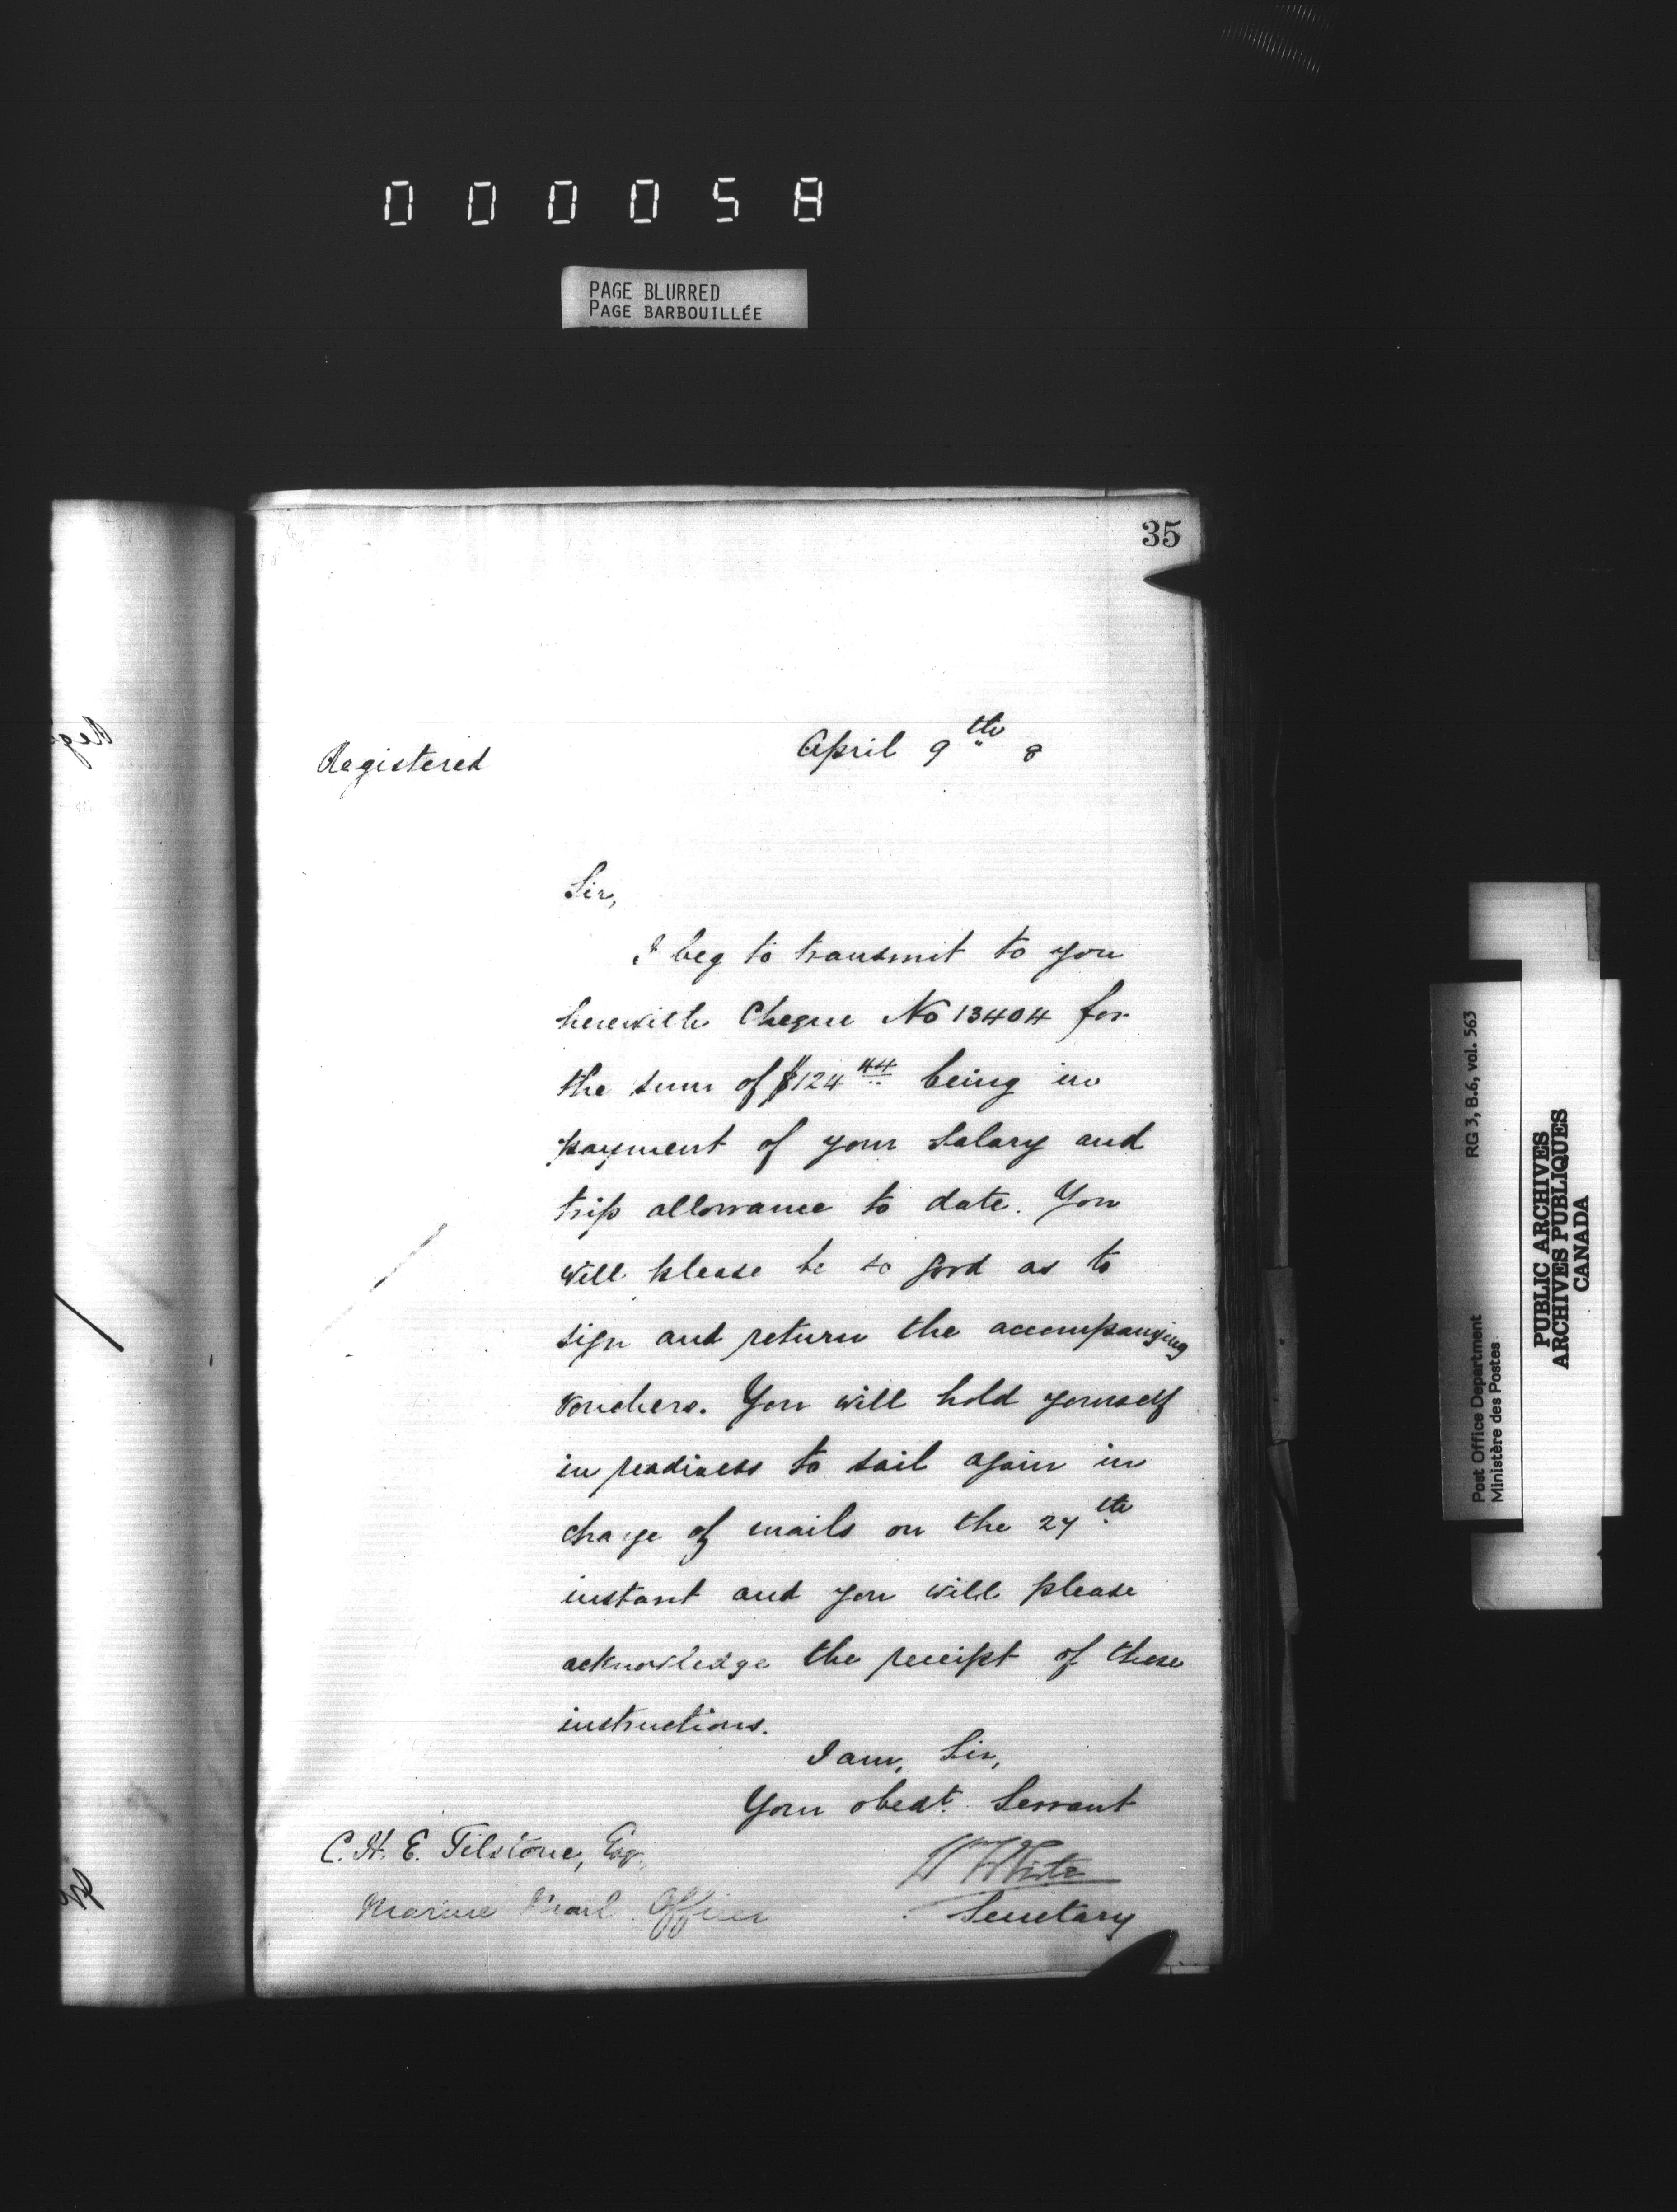 000058
PAGE BLURRED
PAGE BARBOUILLÉE
35
Registered
April 9th 8
Sir,
I beg to transmit to you
herewith Cheque No 13404 for
the sum of $124 44 being in
payment of your Salary and
trip allowance to date. You
will please be so good as to
sign and return the accompanying
vouchers. You will hold yourself
in readiness to sail again in
charge of mails on the 27th
instant and you will please
acknowledge the receipt of these
instructions.
I am, Sir,
Your obedt. Servant
W White
Secretary
C. H. E. Tilstone, Esq.,
Marine Mail Officer
Post Office Department RG 3, B.6, vol. 563
Ministère des Postes
PUBLIC ARCHIVES
ARCHIVES PUBLIQUES
CANADA